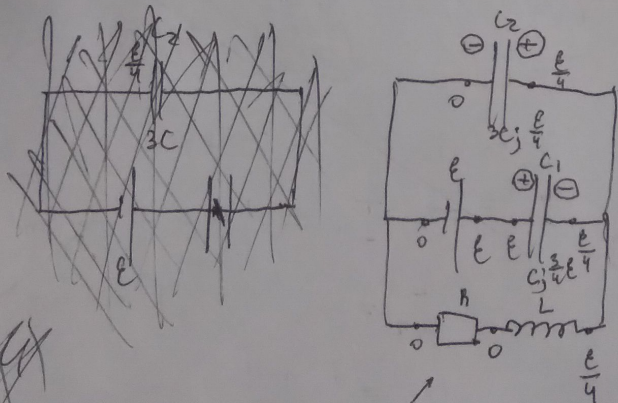 C₂
ε/4
3C
ε
C₂
⊖ ⊕
0
ε/4
3C; ε/4
ε
C₁
⊕ ⊖
0
ε
ε
ε/4
C; 3/4 ε
R
L
0
0
ε/4